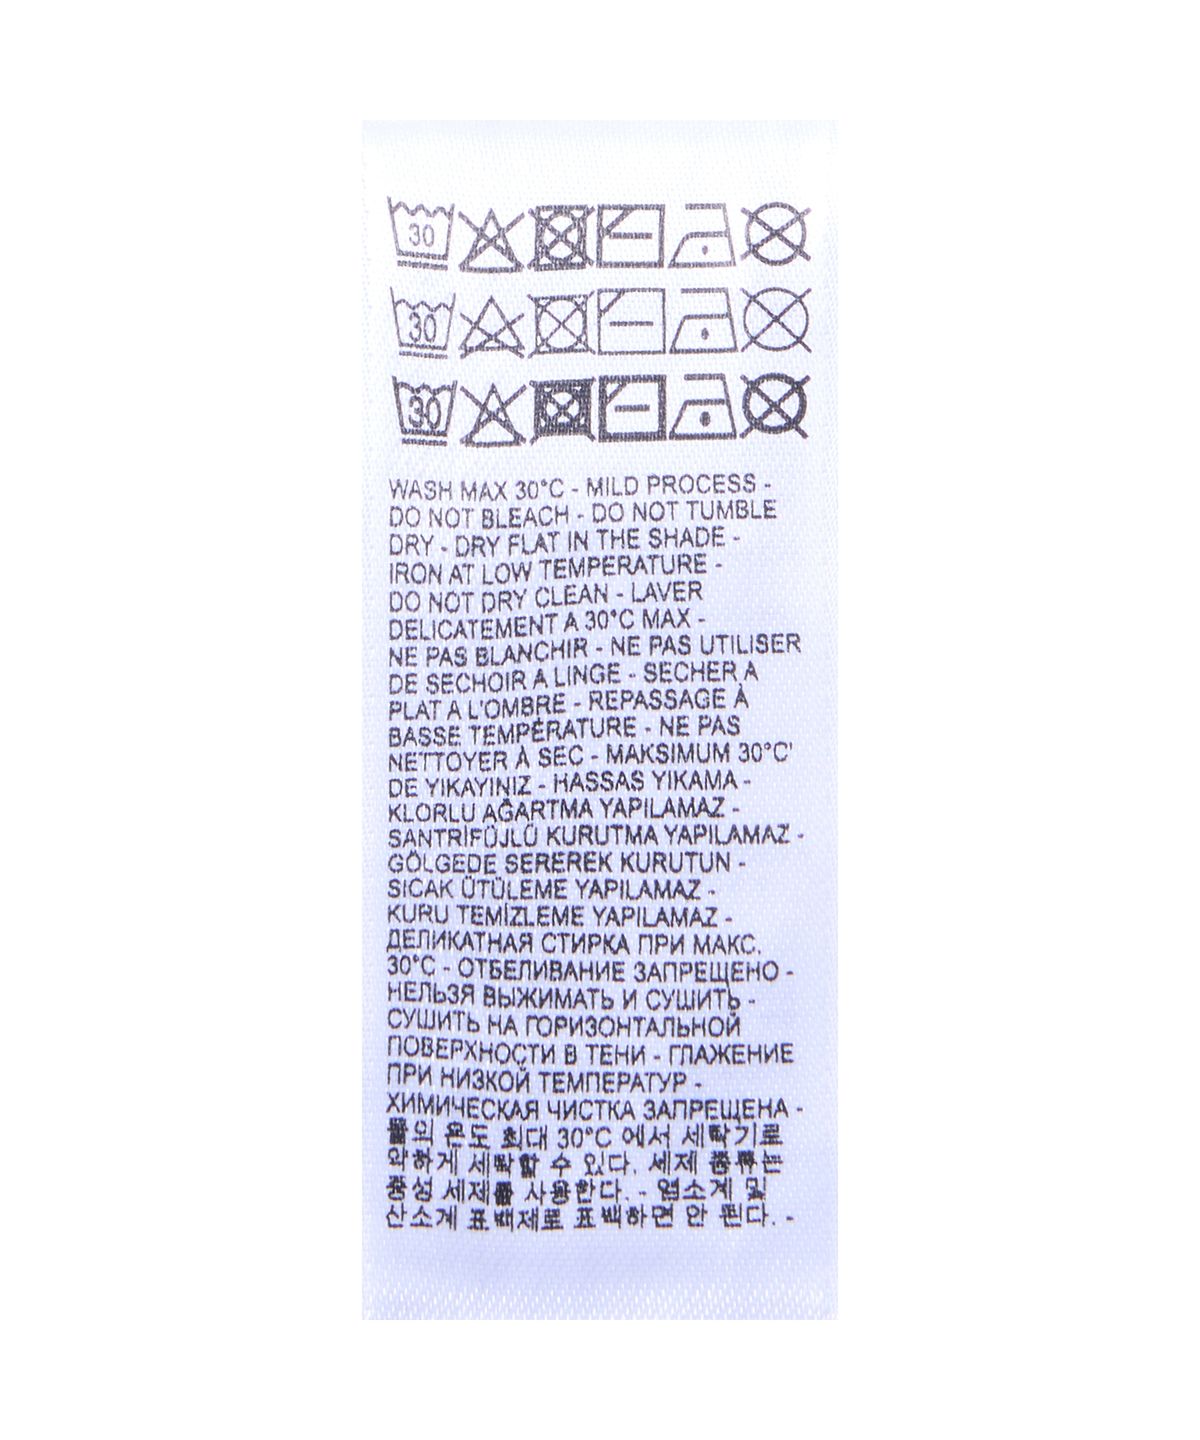 30
30
30
WASH MAX 30°C - MILD PROCESS -
DO NOT BLEACH - DO NOT TUMBLE
DRY - DRY FLAT IN THE SHADE -
IRON AT LOW TEMPERATURE -
DO NOT DRY CLEAN - LAVER
DELICATEMENT A 30°C MAX -
NE PAS BLANCHIR - NE PAS UTILISER
DE SECHOIR A LINGE - SECHER A
PLAT A L'OMBRE - REPASSAGE À
BASSE TEMPÉRATURE - NE PAS
NETTOYER À SEC - MAKSIMUM 30°C'
DE YIKAYINIZ - HASSAS YIKAMA -
KLORLU AĞARTMA YAPILAMAZ -
SANTRİFÜJLÜ KURUTMA YAPILAMAZ -
GÖLGEDE SEREREK KURUTUN -
SICAK ÜTÜLEME YAPILAMAZ -
KURU TEMİZLEME YAPILAMAZ -
ДЕЛИКАТНАЯ СТИРКА ПРИ МАКС.
30°C - ОТБЕЛИВАНИЕ ЗАПРЕЩЕНО -
НЕЛЬЗЯ ВЫЖИМАТЬ И СУШИТЬ -
СУШИТЬ НА ГОРИЗОНТАЛЬНОЙ
ПОВЕРХНОСТИ В ТЕНИ - ГЛАЖЕНИЕ
ПРИ НИЗКОЙ ТЕМПЕРАТУР -
ХИМИЧЕСКАЯ ЧИСТКА ЗАПРЕЩЕНА -
물의 온도 최대 30°C 에서 세탁기로
약하게 세탁할 수 있다. 세제 종류는
중성 세제를 사용한다. - 염소계 및
산소계 표백제로 표백하면 안 된다. -